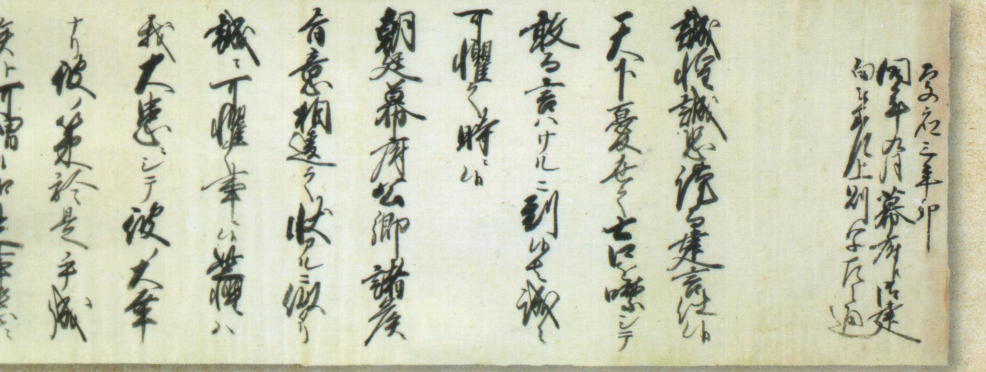 慶応三年卯
同年九月幕府ニ建
白書差上別写左ノ通
誠惶誠恐謹而建言仕候
天下憂世之士口を噤シテ
敢而言ハサルニ到候者誠ニ
可懼之時ニ候
朝廷幕府公卿諸侯
旨意相違之状アルニ似タリ
誠ニ可懼之事ニ候此懼ハ
我大患ニシテ彼ノ大幸
ナリ彼ノ策於是乎成